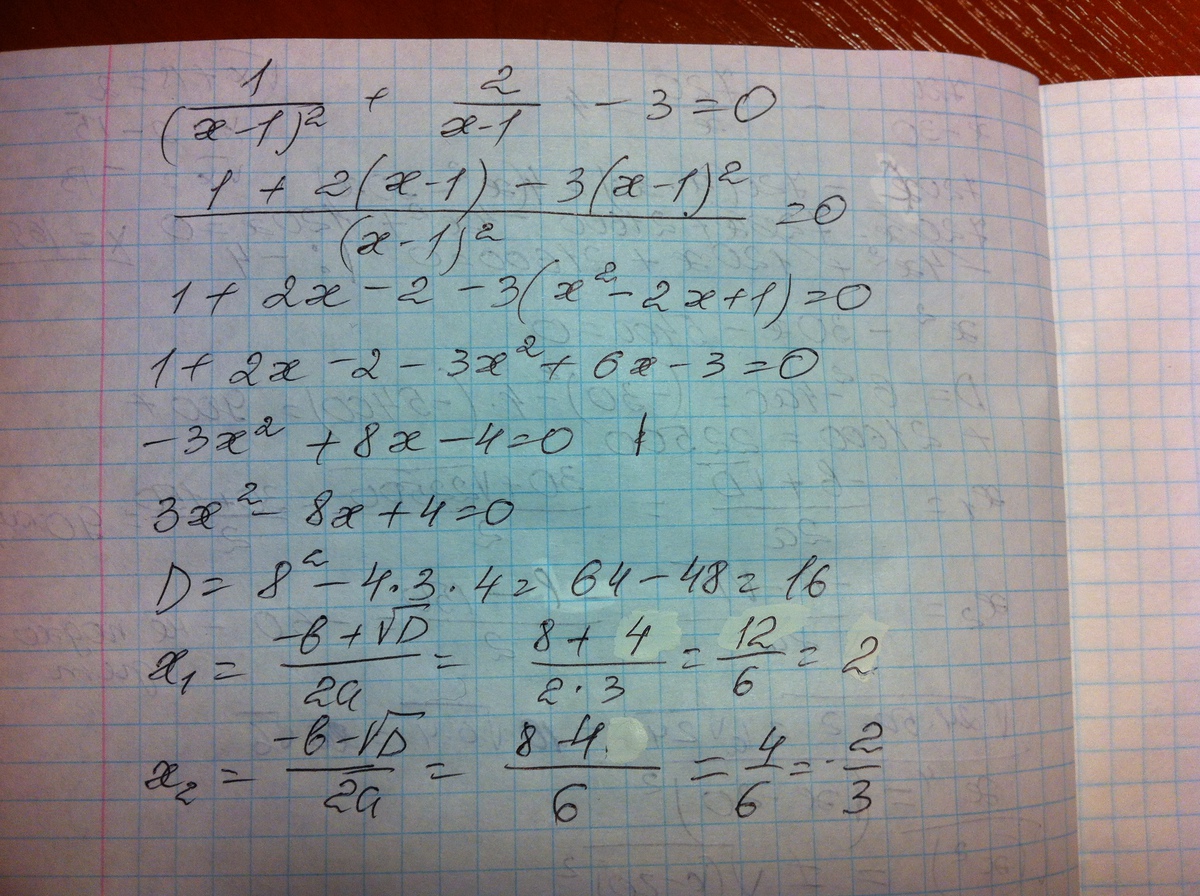 1/(x-1)² + 2/(x-1) - 3 = 0
(1 + 2(x-1) - 3(x-1)²)/(x-1)² = 0
1 + 2x - 2 - 3(x² - 2x + 1) = 0
1 + 2x - 2 - 3x² + 6x - 3 = 0
-3x² + 8x - 4 = 0
3x² - 8x + 4 = 0
D = 8² - 4·3·4 = 64 - 48 = 16
x₁ = (-b + √D)/2a = (8 + 4)/(2·3) = 12/6 = 2
x₂ = (-b - √D)/2a = (8 - 4)/6 = 4/6 = 2/3